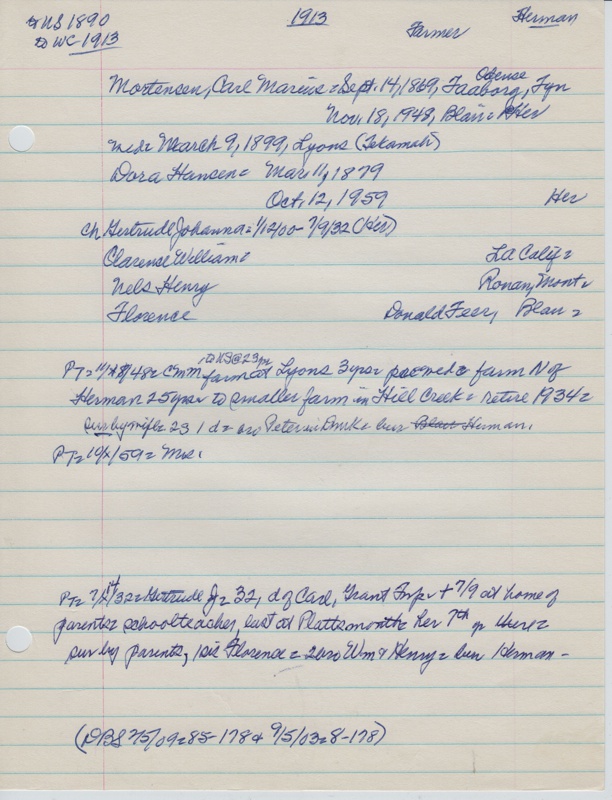 to US 1890
to WC-1913
1913
Farmer
Herman
Mortensen, Carl Marius = Sept. 14, 1869, Faaborg, Odense Fyn
Nov. 18, 1948, Blair = Her
md = March 9, 1899, Lyons (Tekamah)
Dora Hansen = Mar. 11, 1879
Oct. 12, 1959 Her
ch Gertrude Johanna = 1/12/00 - 7/9/32 (Her)
Clarense William = LA Calif =
Nels Henry Ronan, Mont =
Florence Donald Fess, Blair =
PT = 11/18/48 = CMM, to US @ 23 yr farmed at Lyons 3 yrs = farm N of
Herman 25 yrs = to smaller farm in Hill Creek = retire 1934 =
sur by wife = 2s 1 d = bro Peter in Dmrk = bur Blair Herman.
PT = 10/ /59 = Mrs.
PT = 7/14/32 = Gertrude J = 32, d of Carl, Grant Twp = + 7/9 at home of
parents = schoolteacher, last at Plattsmouth = her 7th yr there =
sur by parents, 1 sis Florence = 2 bro Wm & Henry = bur Herman -
(DBS 75/09 = 85-178 & 9/5/03 = 8-178)